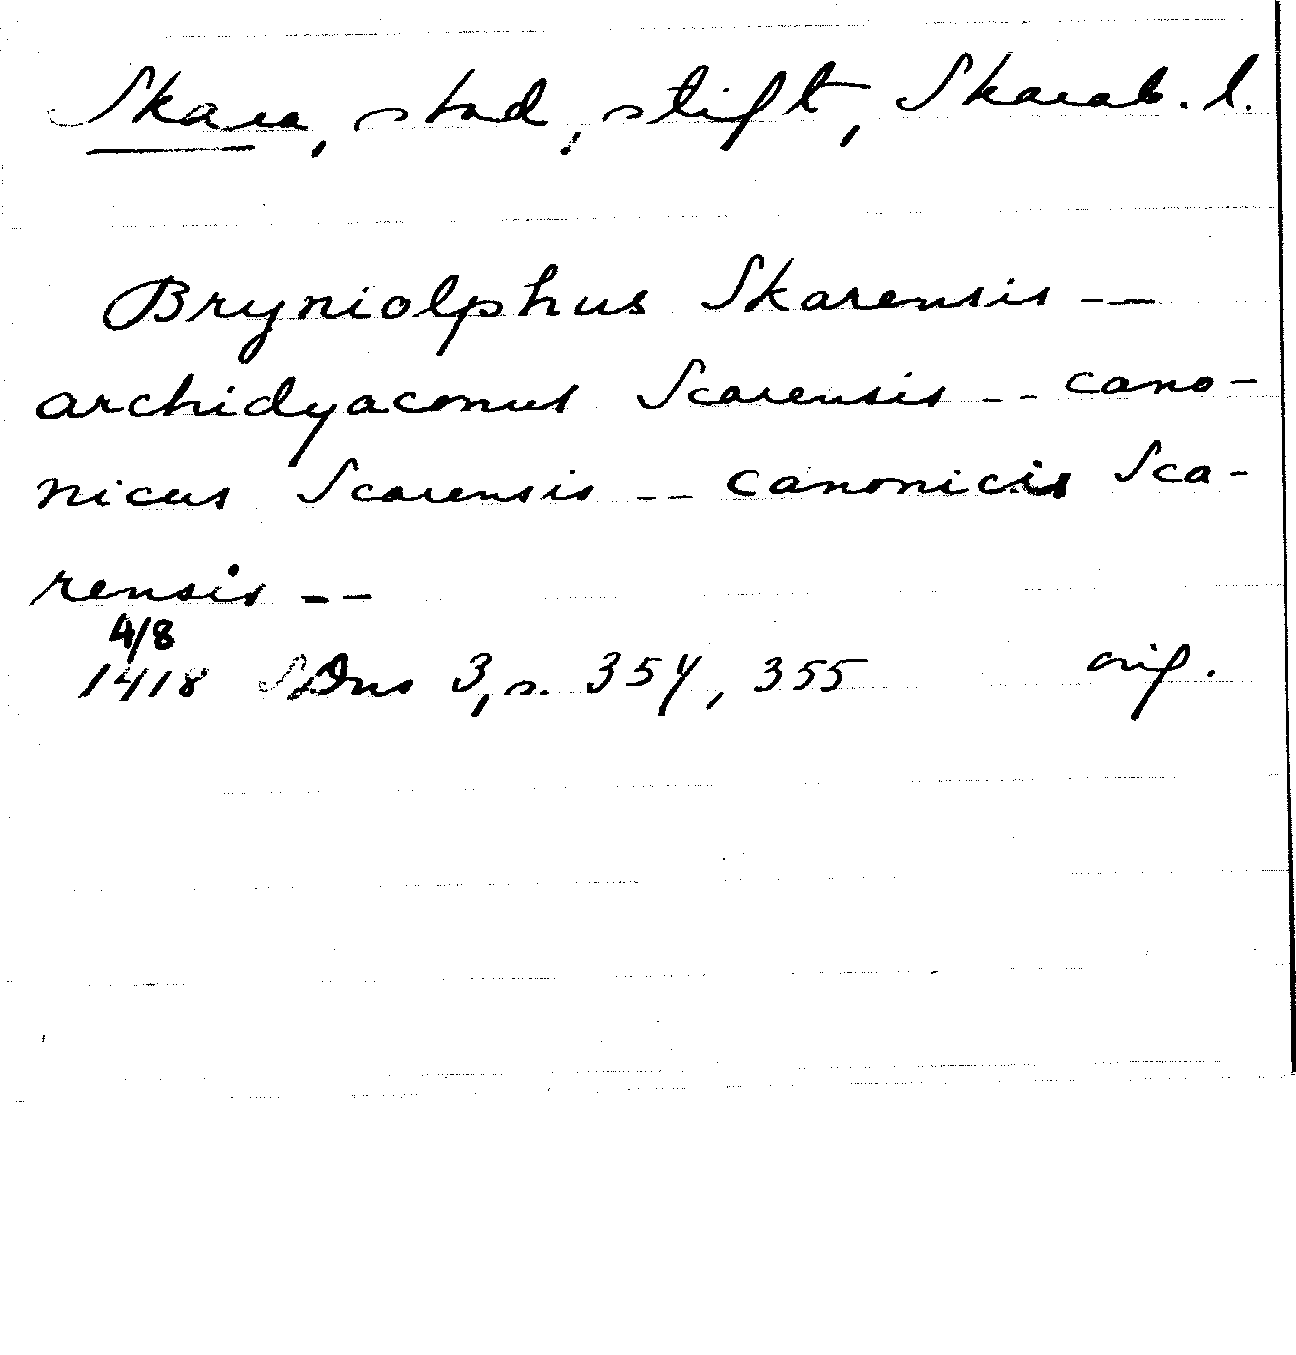 Skara, stad, stift, Skarab. l.
Bryniolphus Skarensis --
archidyaconus Scarensis -- cano-
nicus Scarensis -- canonicis Sca-
rensis --
4/8
1418 SDns 3, s. 354, 355 orig.